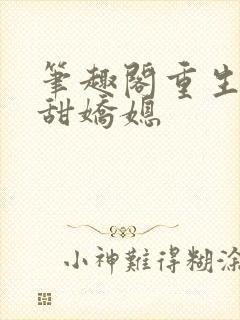 筆趣閣重生
甜嬌媳
小神難得糊涂